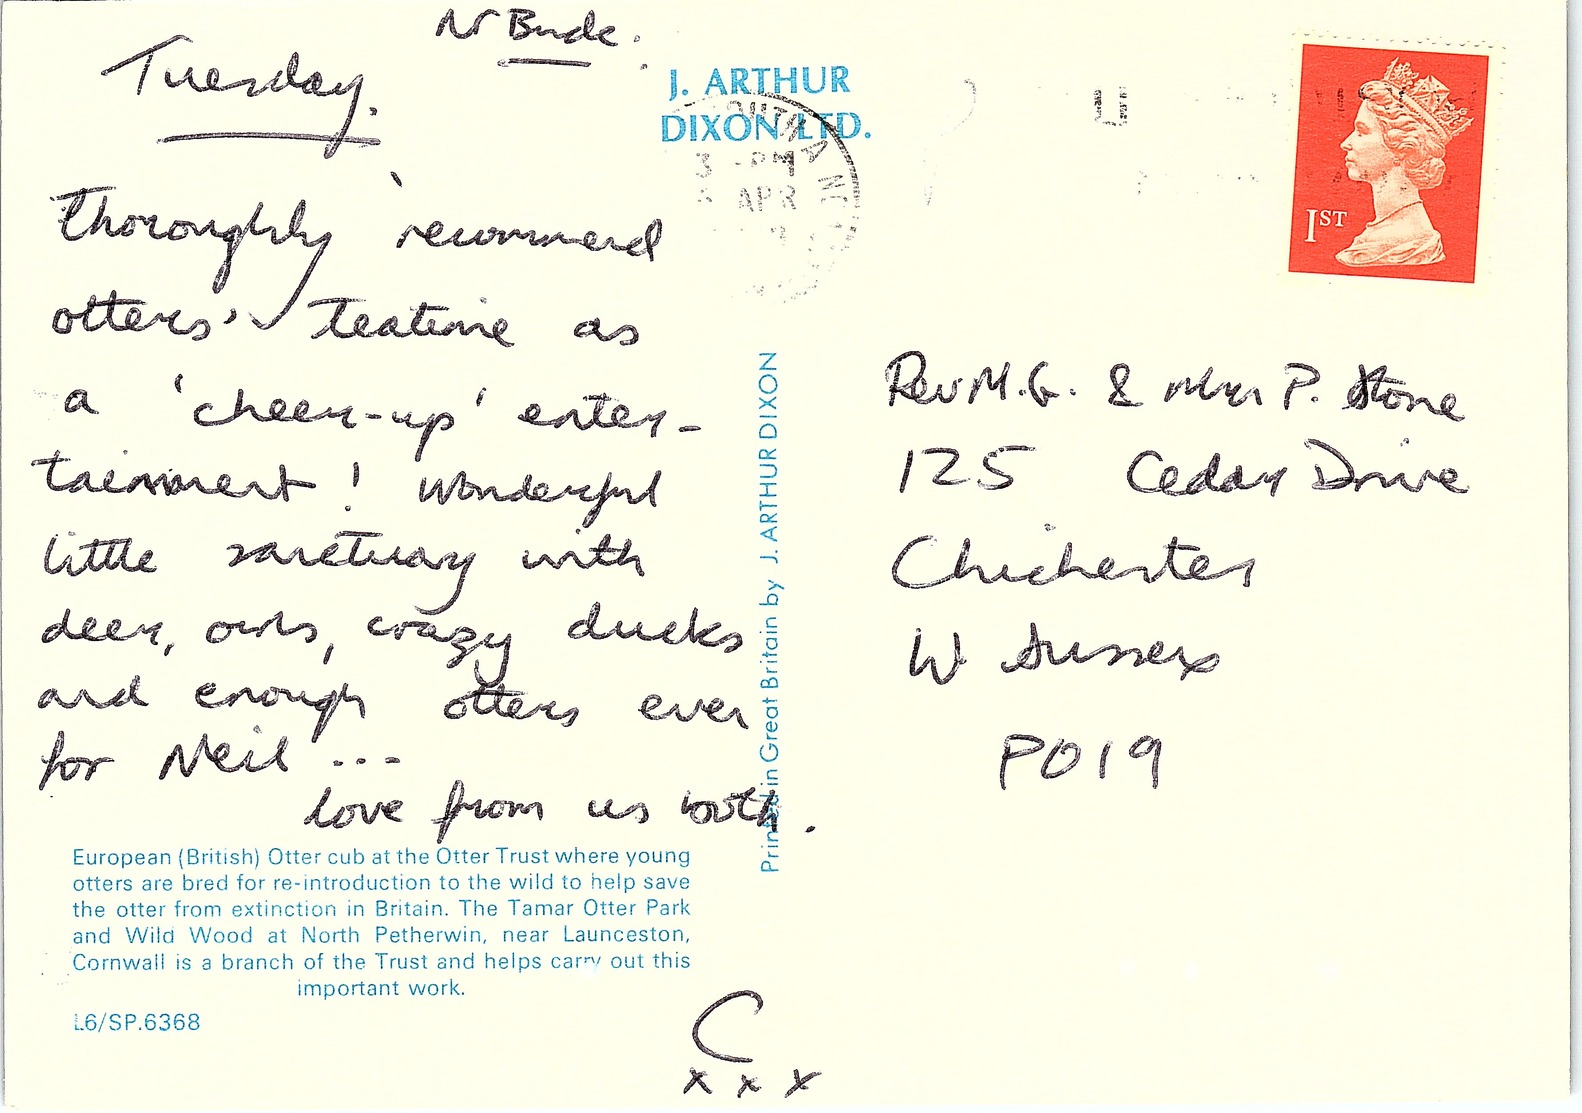 Nr Bude.
Tuesday.
Thoroughly recommend
otters' teatime as
a 'cheer-up' enter-
tainment! Wonderful
little sanctuary with
deer, owls, crazy ducks
and enough otters even
for Neil ...
love from us both.
European (British) Otter cub at the Otter Trust where young
otters are bred for re-introduction to the wild to help save
the otter from extinction in Britain. The Tamar Otter Park
and Wild Wood at North Petherwin, near Launceston,
Cornwall is a branch of the Trust and helps carry out this
important work.
L6/SP.6368
C
x x x
J. ARTHUR
DIXON LTD.
3 - PM
APR
Printed in Great Britain by J. ARTHUR DIXON
1ST
Rev M.G. & Mrs P. Stone
125 Cedar Drive
Chichester
W Sussex
PO19